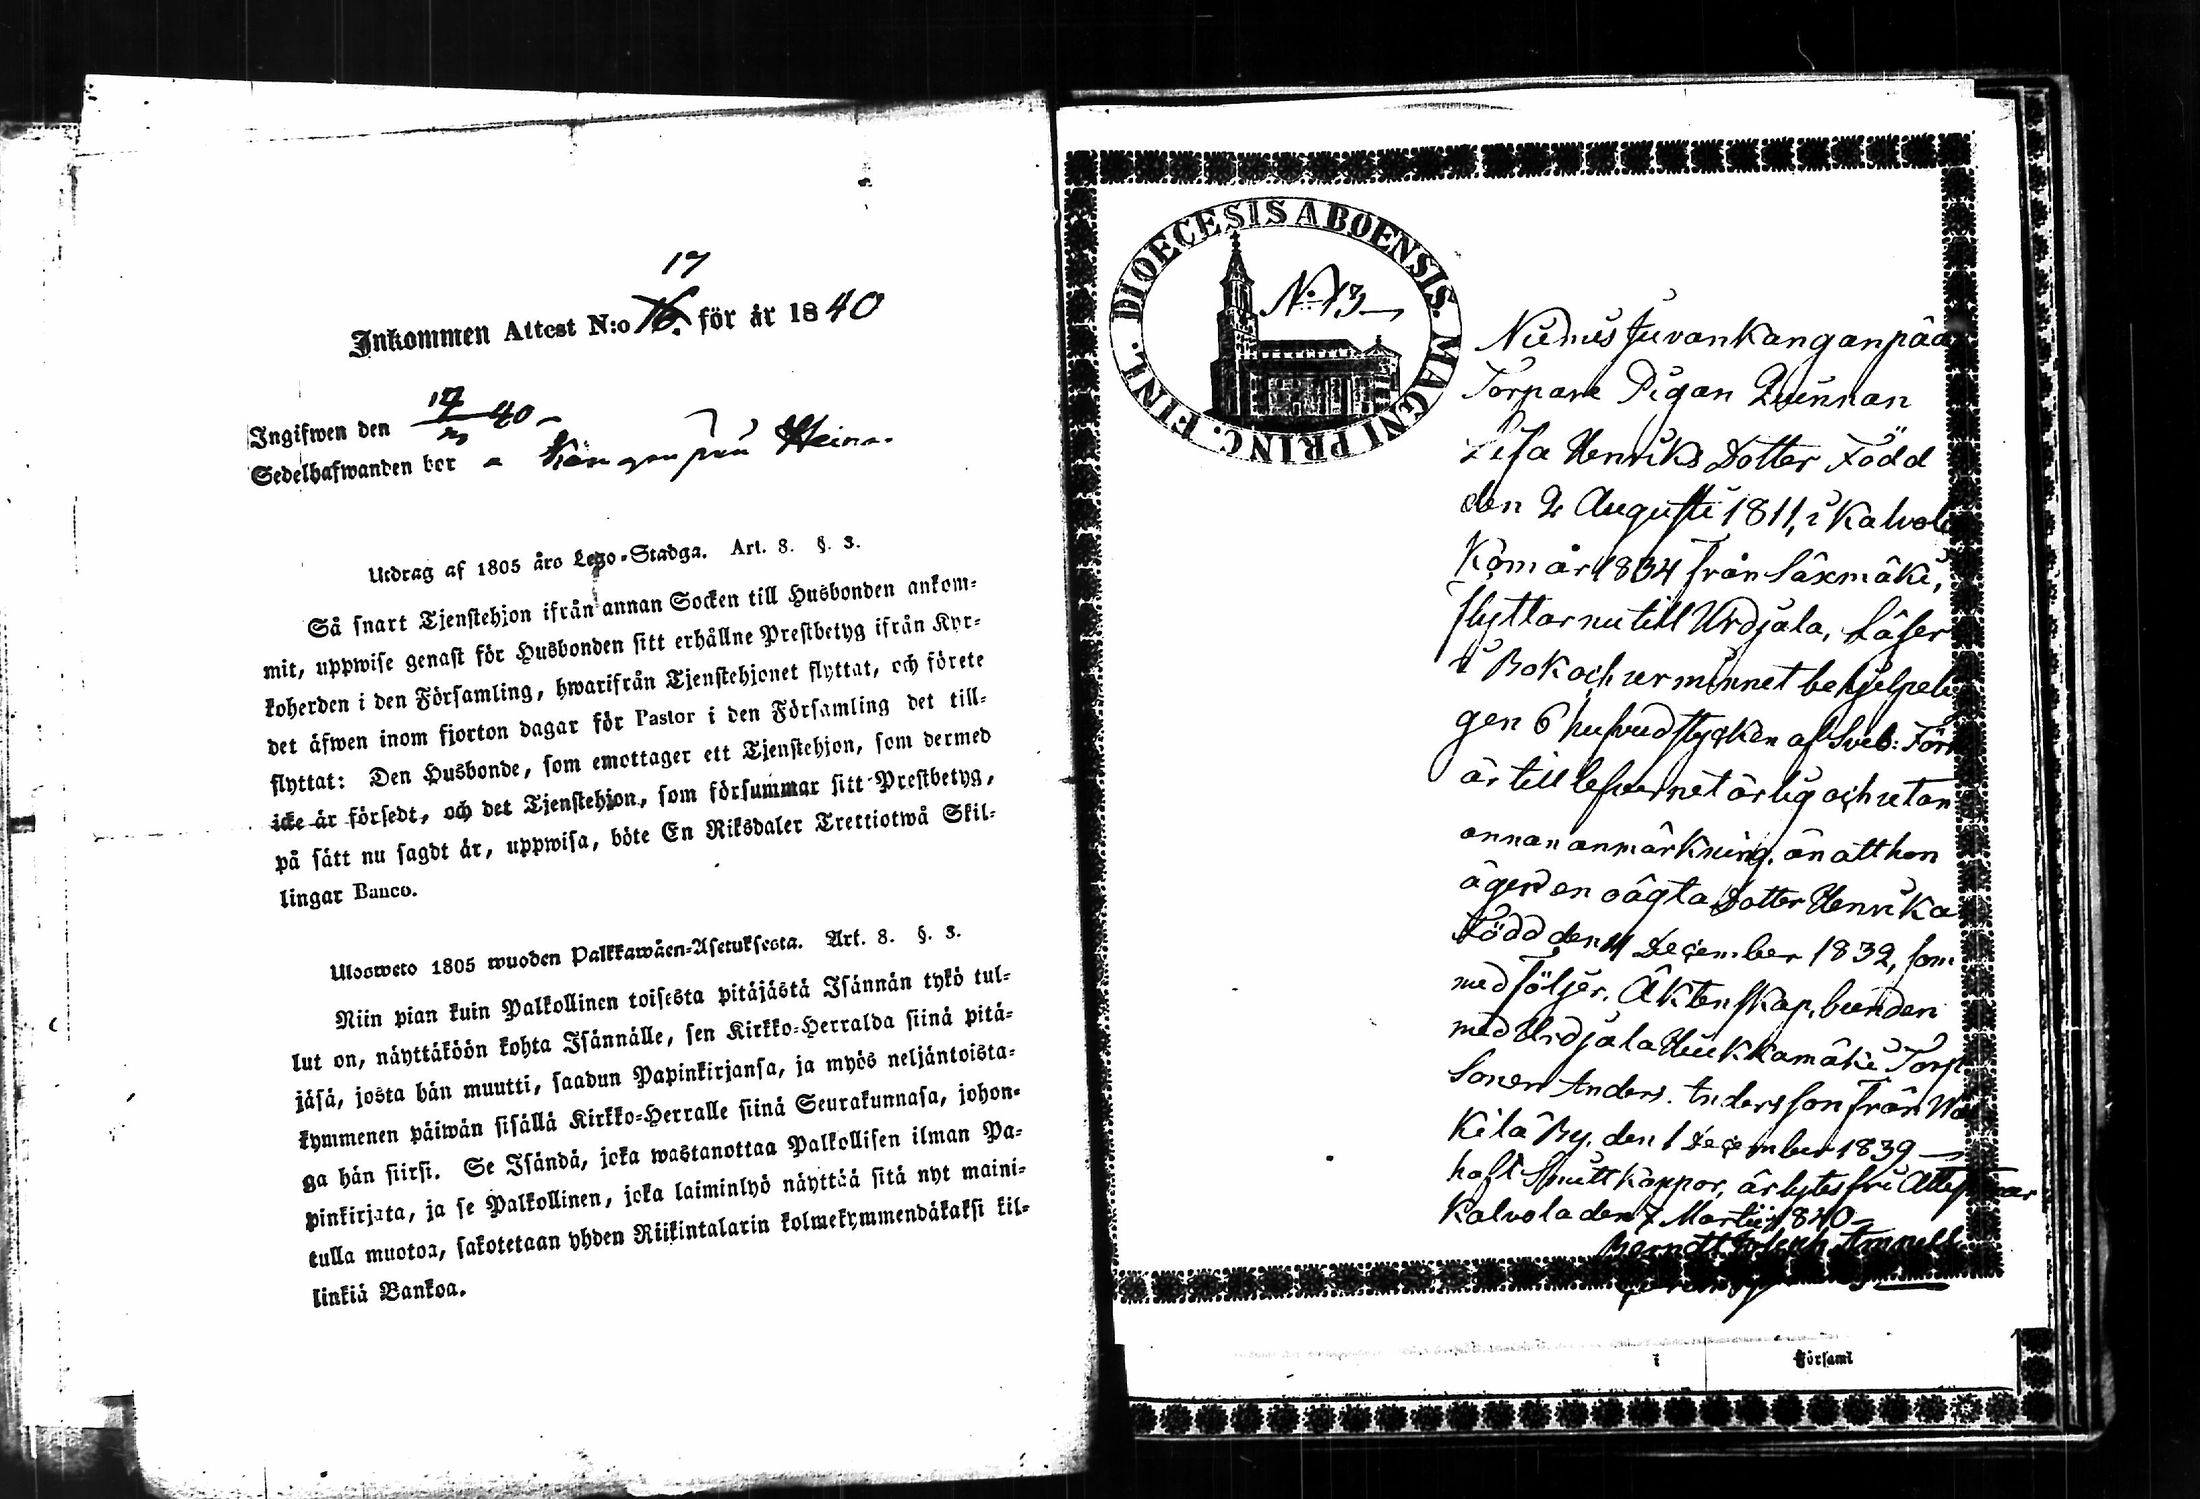 17
Inkommen Attest N:o 16. för år 1840
Ingifwen den 17/3 40
Sedelhafwanden bor
Utdrag af 1805 års Lego-Stadga. Art. 8. §. 3.
Så snart Tjenstehjon ifrån annan Socken till Husbonden ankom-
mit, uppwise genast för Husbonden sitt erhållne Prestbetyg ifrån Kyr-
koherden i den Församling, hwarifrån Tjenstehjonet flyttat, och förete
det äfwen inom fjorton dagar för Pastor i den Församling det till-
flyttat: Den Husbonde, som emottager ett Tjenstehjon, som dermed
icke är försedt, och det Tjenstehjon, som försummar sitt Prestbetyg,
på sätt nu sagdt är, uppwisa, böte En Riksdaler Trettiotwå Skil-
lingar Banco.
Ulosweto 1805 wuoden Palkkawäen-Asetuksesta. Art. 8. §. 3.
Niin pian kuin Palkollinen toisesta pitäjästä Isännän tykö tul-
lut on, näyttäköön kohta Isännälle, sen Kirkko-Herralda siinä pitä-
jäsä, josta hän muutti, saadun Papinkirjansa, ja myös neljäntoista-
kymmenen päiwän sisällä Kirkko-Herralle siinä Seurakunnasa, johon-
ga hän siirsi. Se Isändä, joka wastanottaa Palkollisen ilman Pa-
pinkirjata, ja se Palkollinen, joka laiminlyö näyttää sitä nyt maini-
tulla muotoa, sakotetaan yhden Riikintalarin kolmekymmendäkaksi kil-
linkiä Bankoa.
DIOECESIS ABOENSIS. MAGNI PRINC. FINL.
N:o 13
Juvankanganpää
Torpare Pigan Qvinnan
Lisa Henriks Dotter Född
den 2 Augusti 1811, i Kalvola
Kom år 1834 från Säxmäki,
flyttar nu till Urdjala, Läser
i Bok och ur minnet behjelpeli
gen 6 hufvudstycken af Sveb: Förk
är till lefvernet ärlig och utan
annan anmärkning, än att hon
äger en oägta Dotter Henrika
Född den 11 December 1832, som
medföljer. Äktenskap, bunden
med Urdjala Huukkamäki Torp
Sonen Anders Andersson från
Kilä By. den 1 December 1839
haft Skuttkoppor, är lytes fri Attesterar
Kalvola den 7 Martii 1840
Berndt Joseph Amnell